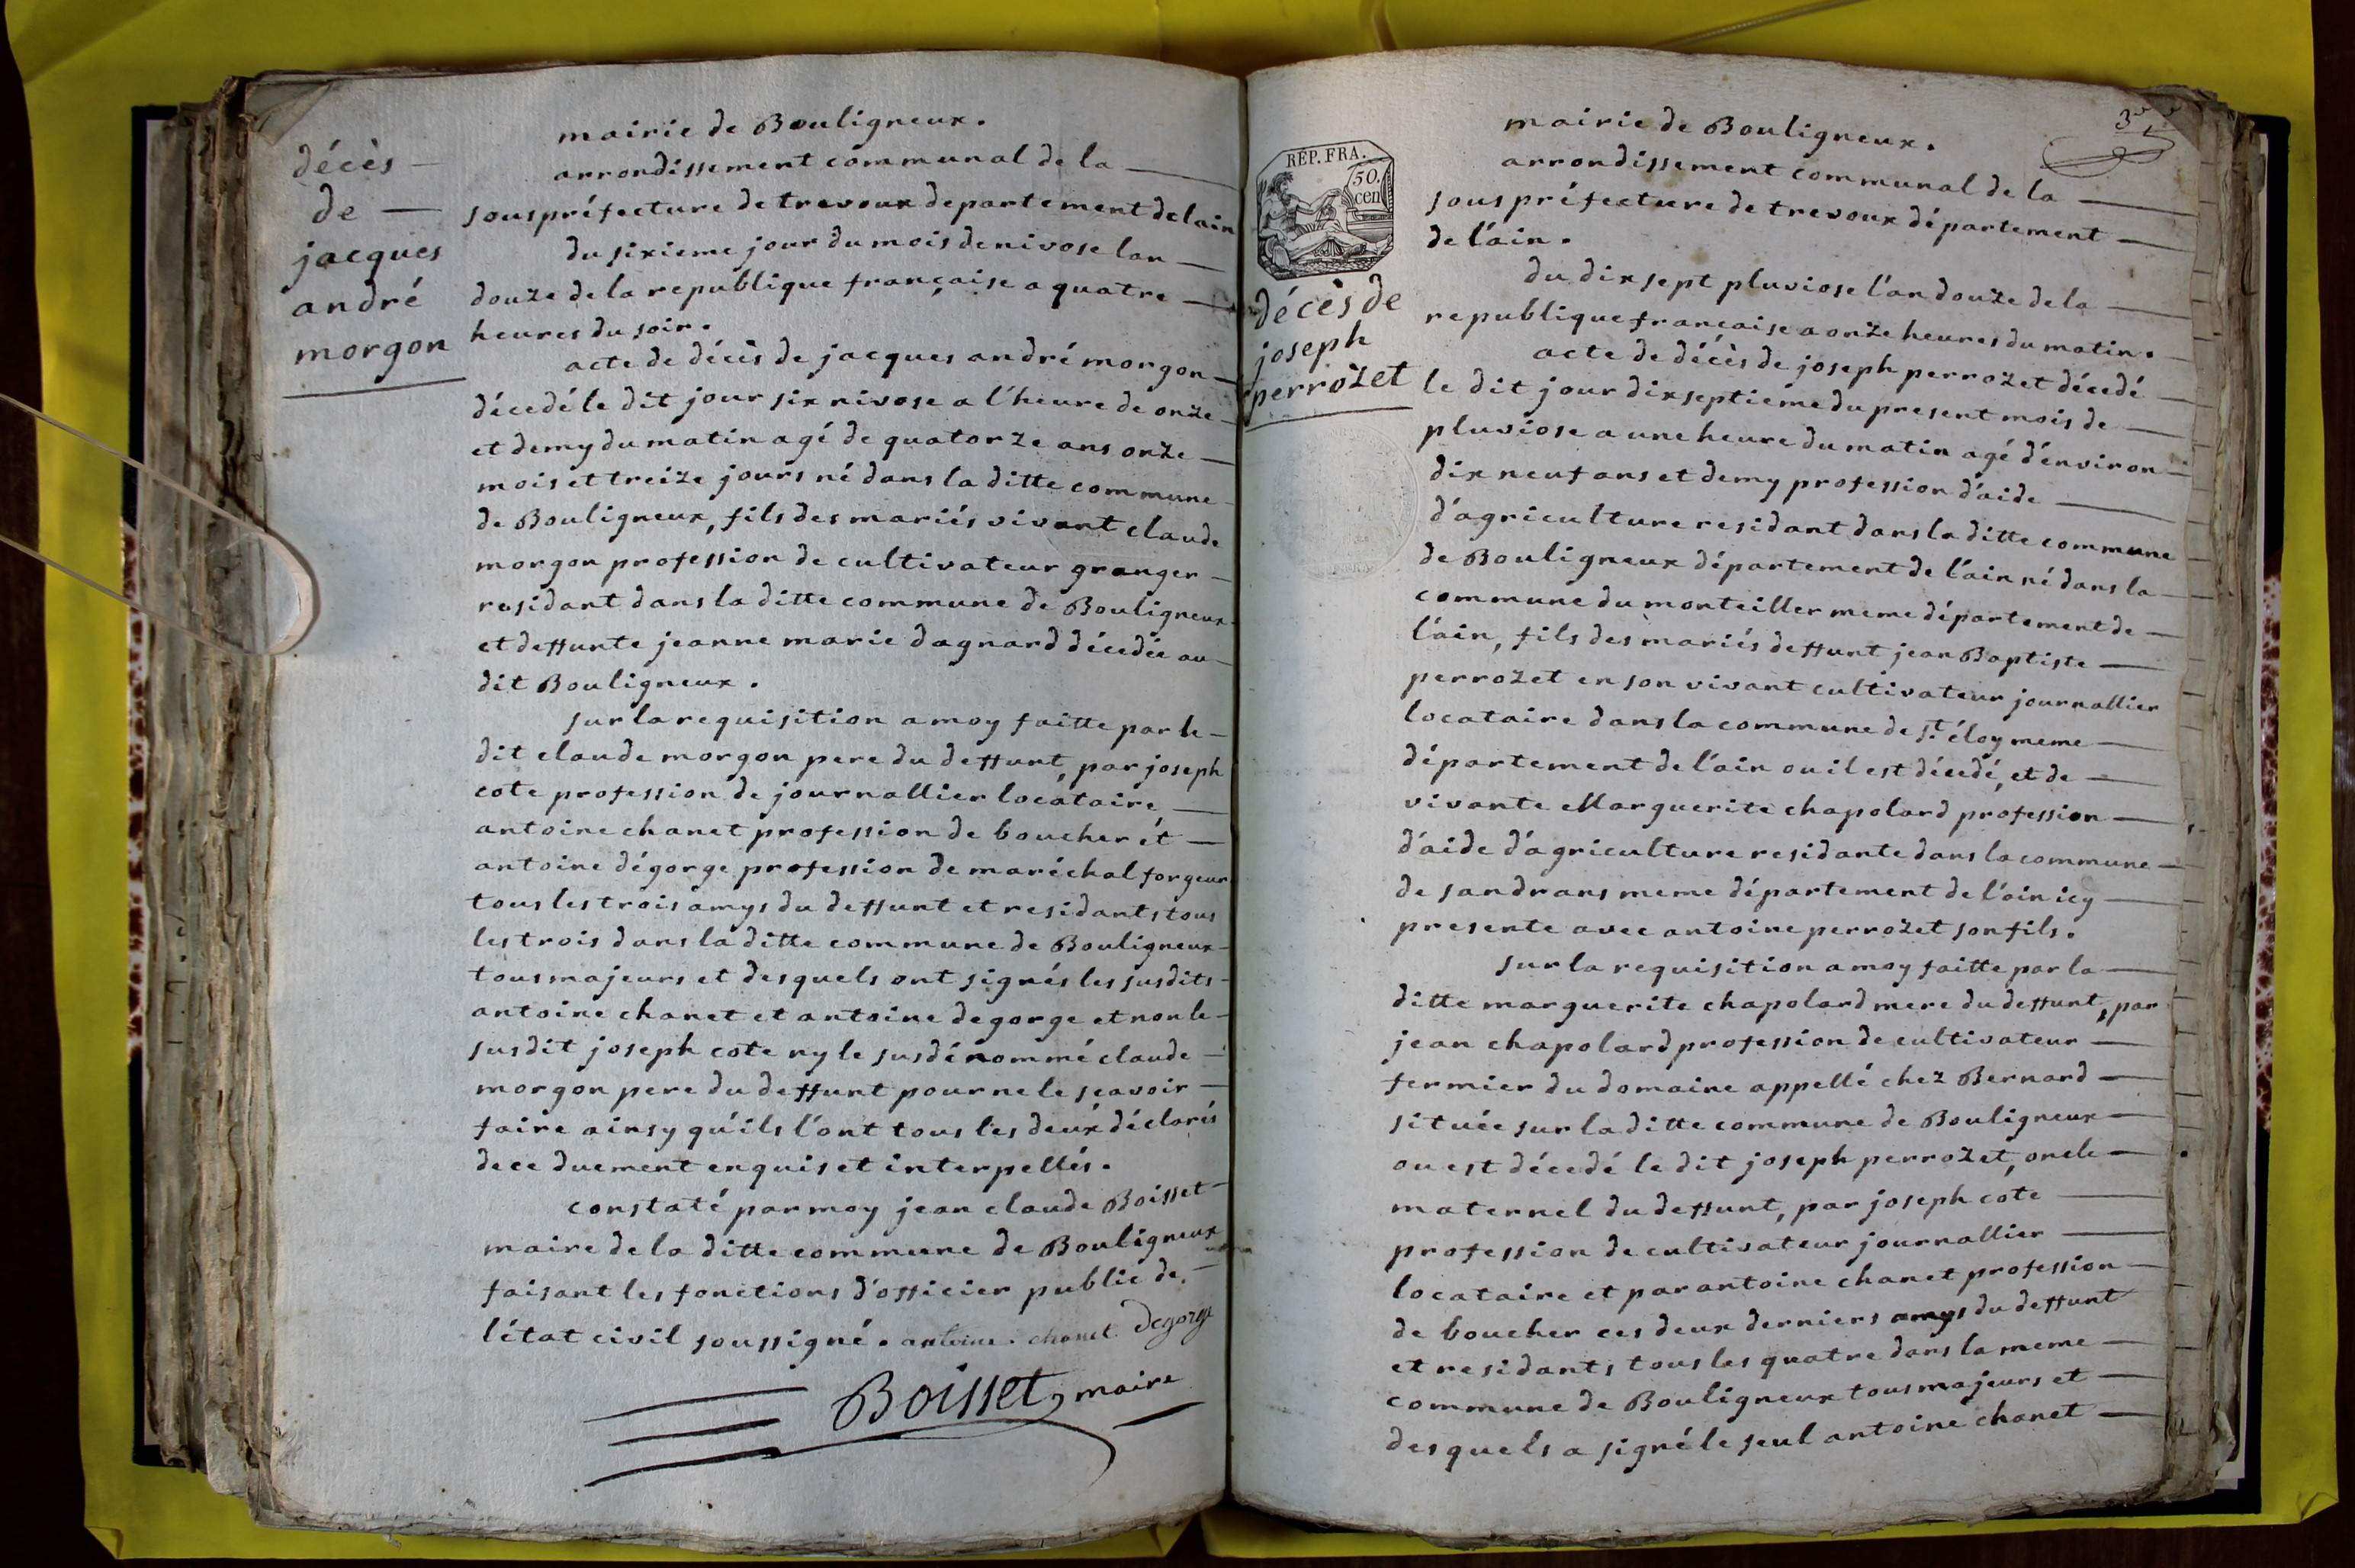 décès
de
jacques
andré
morgon
mairie de Bouligneux.
arrondissement communal de la
souspréfecture de trevoux departement de lain
du sixieme jour du mois de nivose lan
douze de la republique française a quatre
heures du soir.
acte de décès de jacques andré morgon
décedé le dit jour six nivose a l'heure de onze
et demy du matin agé de quatorze ans onze
mois et treize jours né dans la ditte commune
de Bouligneux, fils des mariés vivant claude
morgon profession de cultivateur granger
residant dans la ditte commune de Bouligneux
et deffunte jeanne marie dagnard décedée au
dit Bouligneux.
sur la requisition a moy faitte par le
dit claude morgon pere du deffunt, par joseph
cote profession de journallier locataire
antoine chanet profession de boucher ét
antoine dégorge profession de maréchal forgeur
tous les trois amys du deffunt et residants tous
les trois dans la ditte commune de Bouligneux
tous majeurs et desquels ont signés les susdits
antoine chanet et antoine degorge et non le
susdit joseph cote ny le susdénommé claude
morgon pere du deffunt pour ne le scavoir
faire ainsy qu'ils l'ont tous les deux déclarés
de ce duement enquis et interpellés.
constaté par moy jean claude Boisset
maire de la ditte commune de Bouligneux
faisant les fonctions d'officier public de
l'état civil soussigné. antoine. chanet Degorge
Boisset, maire
3e
RÉP. FRA.
50.
cen
décès de
joseph
perrozet
mairie de Bouligneux.
arrondissement communal de la
sous préfecture de trevoux département
de l'ain.
du dix sept pluviose l'an douze de la
republique française a onze heures du matin.
acte de décès de joseph perrozet décedé
le dit jour dixseptiéme du present mois de
pluviose a une heure du matin agé d'environ
dix neuf ans et demy profession d'aide
d'agriculture residant dans la ditte commune
de Bouligneux département de l'ain né dans la
commune du monteiller meme département de
l'ain, fils des mariés deffunt jean Baptiste
perrozet en son vivant cultivateur journallier
locataire dans la commune de St. éloy meme
département de l'ain ou il est décedé, et de
vivante Marguerite chapolard profession
d'aide d'agriculture residante dans la commune
de sandrans meme département de l'ain icy
presente avec antoine perrozet son fils.
sur la requisition a moy faitte par la
ditte marguerite chapolard mere du deffunt, par
jean chapolard profession de cultivateur
fermier du domaine appellé chez Bernard
située sur la ditte commune de Bouligneux
ou est décedé le dit joseph perrozet, oncle
maternel du deffunt, par joseph cote
profession de cultivateur journallier
locataire et par antoine chanet profession
de boucher ces deux derniers amys du deffunt
et residants tous les quatre dans la meme
commune de Bouligneux tous majeurs et
desquels a signé le seul antoine chanet